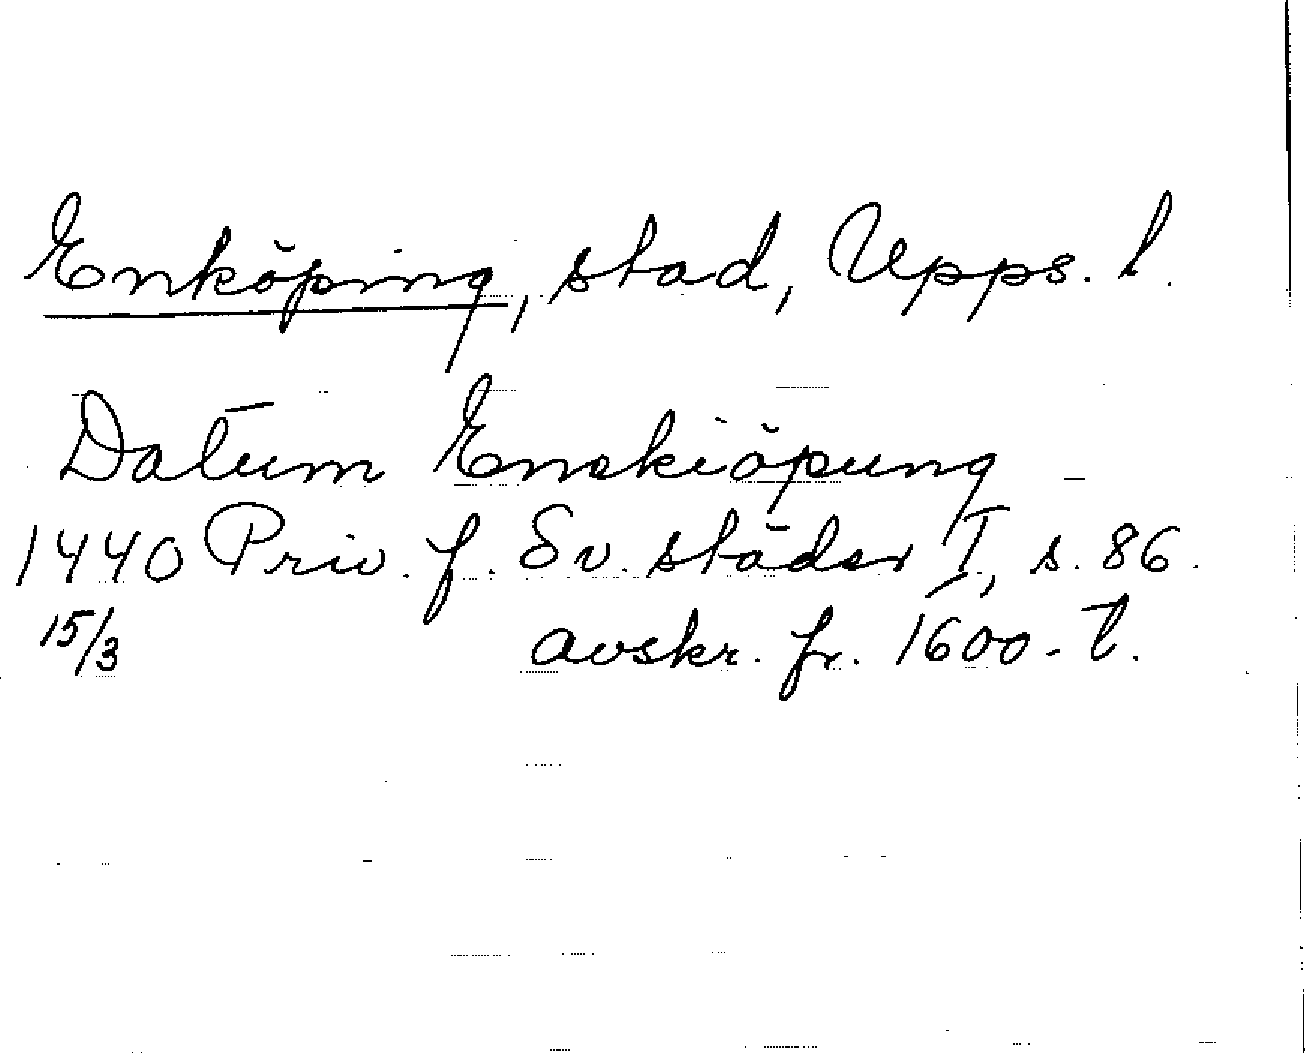 Enköping, stad, Upps. l.
Datum Enekiöpung
1440 Priv. f. Sv. städer I, s. 86.
15/3 avskr. fr. 1600-t.